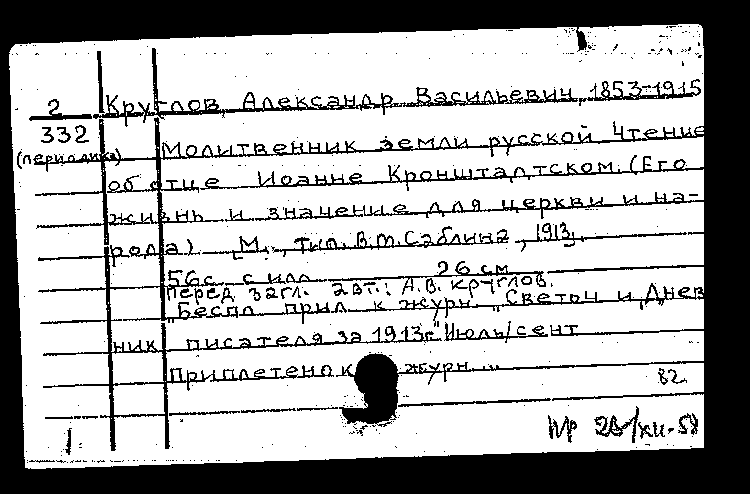 2 Круглов, Александр Васильевич, 1853-1915
332
(периодика) Молитвенник земли русской Чтение
об отце Иоанне Кронштадтском. (Его
жизнь и значение для церкви и на-
рода) [М., тип. В.М. Саблина, 1913].
56с. с илл. 26 см
Перед загл. авт.: А.В. Круглов.
"Беспл. прил. к журн. "Светоч и Днев
ник писателя за 1913г" Июль/сент
Приплетено к журн. ...
82.
28/XII-58